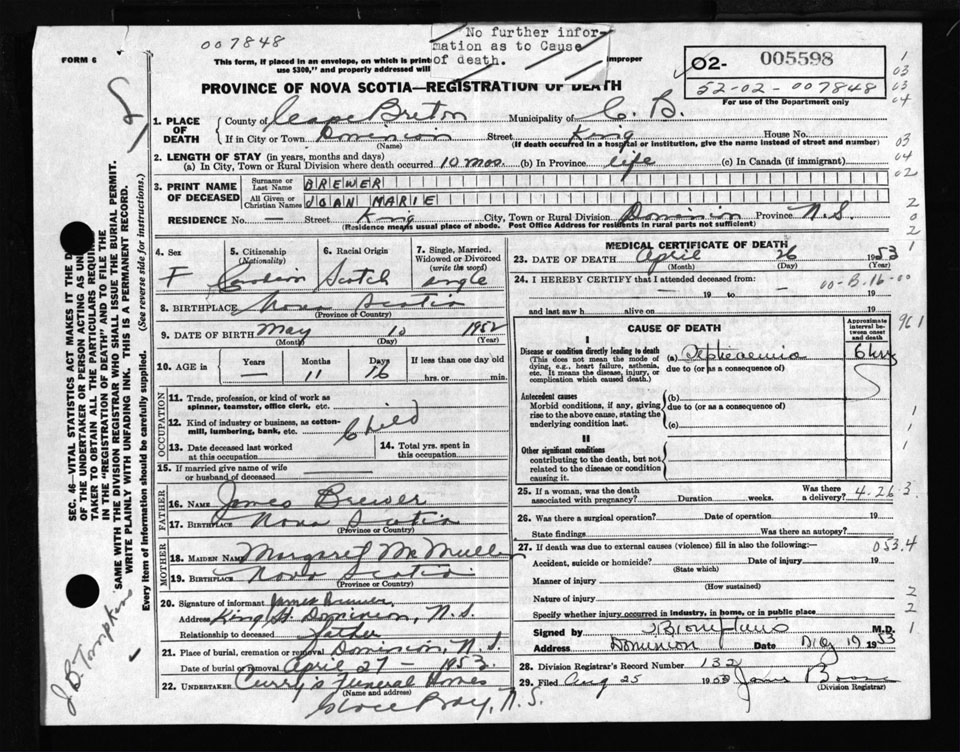 007848
No further infor-
mation as to Cause
of death.
FORM 6
This form, if placed in an envelope, on which is print improper
use $300," and properly addressed will
O2- 005598
52-02-007848
For use of the Department only
PROVINCE OF NOVA SCOTIA—REGISTRATION OF DEATH
1. PLACE OF DEATH
County of Cape Breton Municipality of C. B.
If in City or Town Dominion Street King House No.
(Name) (If death occurred in a hospital or institution, give the name instead of street and number)
2. LENGTH OF STAY (in years, months and days)
(a) In City, Town or Rural Division where death occurred 10 mos. (b) In Province life (c) In Canada (if immigrant)
3. PRINT NAME OF DECEASED
Surname or Last Name BREWER
All Given or Christian Names JOAN MARIE
RESIDENCE No. — Street King City, Town or Rural Division Dominion Province N.S.
(Residence means usual place of abode. Post Office Address for residents in rural parts not sufficient)
4. Sex F
5. Citizenship (Nationality)
6. Racial Origin Scotch
7. Single, Married, Widowed or Divorced (write the word) single
8. BIRTHPLACE Nova Scotia
(Province or Country)
9. DATE OF BIRTH May 10 1952
(Month) (Day) (Year)
10. AGE in Years — Months 11 Days 16 If less than one day old
hrs. or min.
OCCUPATION
11. Trade, profession, or kind of work as spinner, teamster, office clerk, etc.
12. Kind of industry or business, as cotton-mill, lumbering, bank, etc. Child
13. Date deceased last worked at this occupation
14. Total yrs. spent in this occupation
15. If married give name of wife or husband of deceased
FATHER
16. NAME James Brewer
17. BIRTHPLACE Nova Scotia
(Province or Country)
MOTHER
18. MAIDEN NAME Margaret McMullen
19. BIRTHPLACE Nova Scotia
(Province or Country)
20. Signature of informant James Brewer
Address King St. Dominion, N.S.
Relationship to deceased father
21. Place of burial, cremation or removal Dominion, N.S.
Date of burial or removal April 27 - 1953
22. UNDERTAKER Curry's Funeral Homes
(Name and address)
Glace Bay, N.S.
MEDICAL CERTIFICATE OF DEATH
23. DATE OF DEATH April 26 1953
(Month) (Day) (Year)
24. I HEREBY CERTIFY that I attended deceased from: 00-B-16-00
— 19 to — 19
and last saw h alive on 19
CAUSE OF DEATH
Approximate interval between onset and death
I
Disease or condition directly leading to death (a) Septicaemia 6 hrs
(This does not mean the mode of dying, e.g., heart failure, asthenia, etc. It means the disease, injury, or complication which caused death.)
due to (or as a consequence of)
Antecedent causes (b)
Morbid conditions, if any, giving rise to the above cause, stating the underlying condition last.
due to (or as a consequence of)
(c)
II
Other significant conditions
contributing to the death, but not related to the disease or condition causing it.
25. If a woman, was the death associated with pregnancy? Duration weeks. Was there a delivery? 4-26-3
26. Was there a surgical operation? Date of operation 19
State findings Was there an autopsy?
27. If death was due to external causes (violence) fill in also the following:— 053.4
Accident, suicide or homicide? Date of injury 19
(State which)
Manner of injury
(How sustained)
Nature of injury
Specify whether injury occurred in industry, in home, or in public place
Signed by M.D.
Address Dominion Date 19 53
28. Division Registrar's Record Number 132
29. Filed Aug 25 1953
(Division Registrar)
SEC. 46—VITAL STATISTICS ACT MAKES IT THE D
OF THE UNDERTAKER OR PERSON ACTING AS UND
TAKER TO OBTAIN ALL THE PARTICULARS REQUIRE
IN THE "REGISTRATION OF DEATH" AND TO FILE THE
SAME WITH THE DIVISION REGISTRAR WHO SHALL ISSUE THE BURIAL PERMIT.
WRITE PLAINLY WITH UNFADING INK. THIS IS A PERMANENT RECORD.
Every item of Information should be carefully supplied. (See reverse side for instructions.)
J B Tompkins
1
03
03
04
03
04
02
2
0
2
1
961
1
1
2
2
1